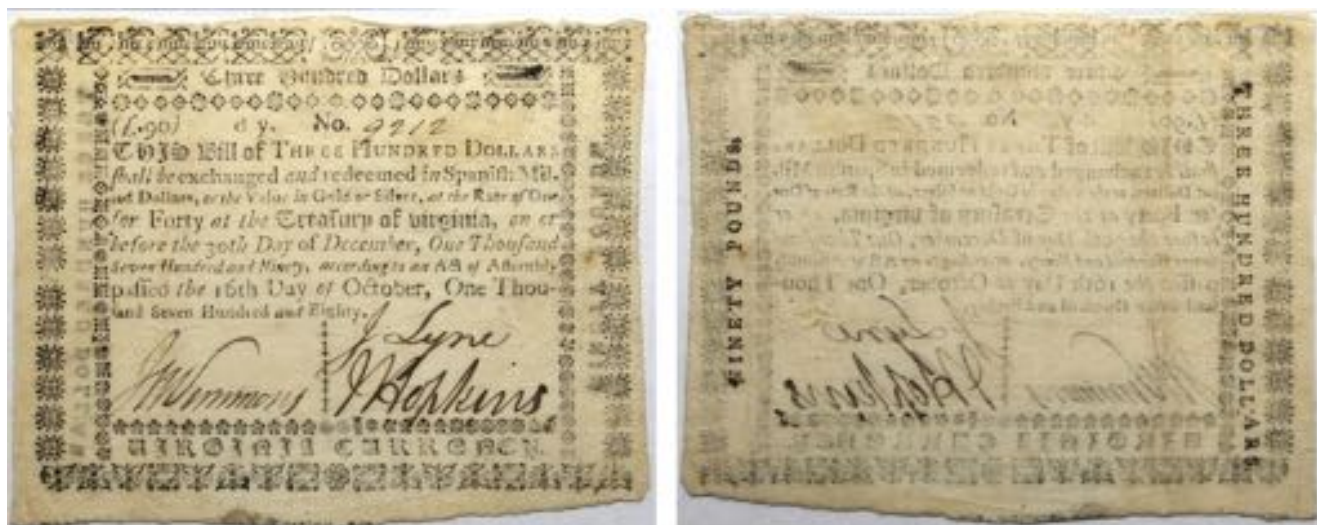 Three Hundred Dollars
(£.90) No. 9212
THIS Bill of THREE HUNDRED DOLLARS
shall be exchanged and redeemed in Spanish Mil-
led Dollars, or the Value in Gold or Silver, at the Rate of One
for Forty at the Treasury of Virginia, on or
before the 30th Day of December, One Thousand
Seven Hundred and Ninety, according to an Act of Assembly
passed the 16th Day of October, One Thou-
sand Seven Hundred and Eighty.
J Lyne
J Hopkins
VIRGINIA CURRENCY.
NINETY POUNDS.
THREE HUNDRED DOLLARS